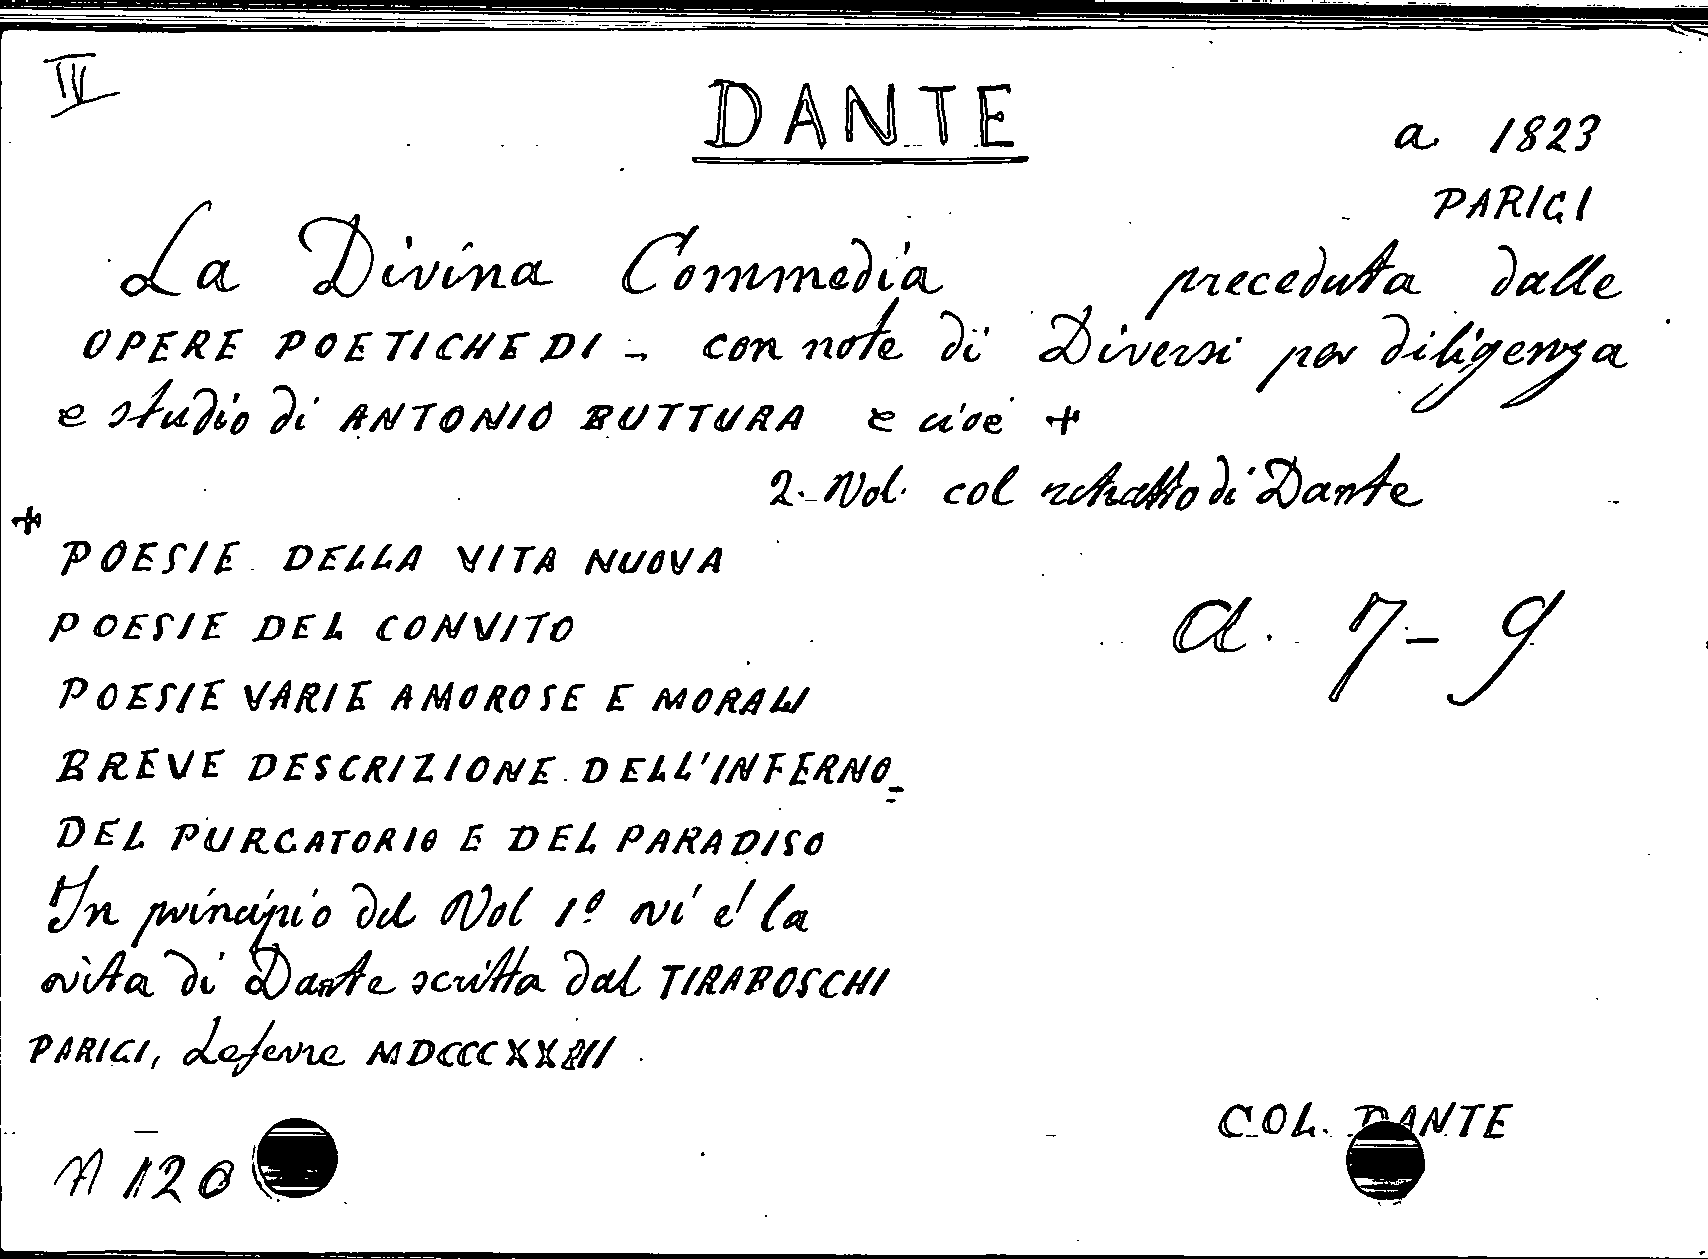 IV
DANTE
a. 1823
PARIGI
La Divina Commedia preceduta dalle
OPERE POETICHE DI - con note di Diversi per diligenza
e studio di ANTONIO BUTTURA e cioè +
2. Vol. col ritratto di Dante
+
POESIE DELLA VITA NUOVA
POESIE DEL CONVITO
a. 7-9
POESIE VARIE AMOROSE E MORALI
BREVE DESCRIZIONE DELL'INFERNO=
DEL PURGATORIO E DEL PARADISO
In principio del Vol 1º vi è la
vita di Dante scritta dal TIRABOSCHI
PARIGI, Lefevre MDCCCXXIII
COL. DANTE
N 120